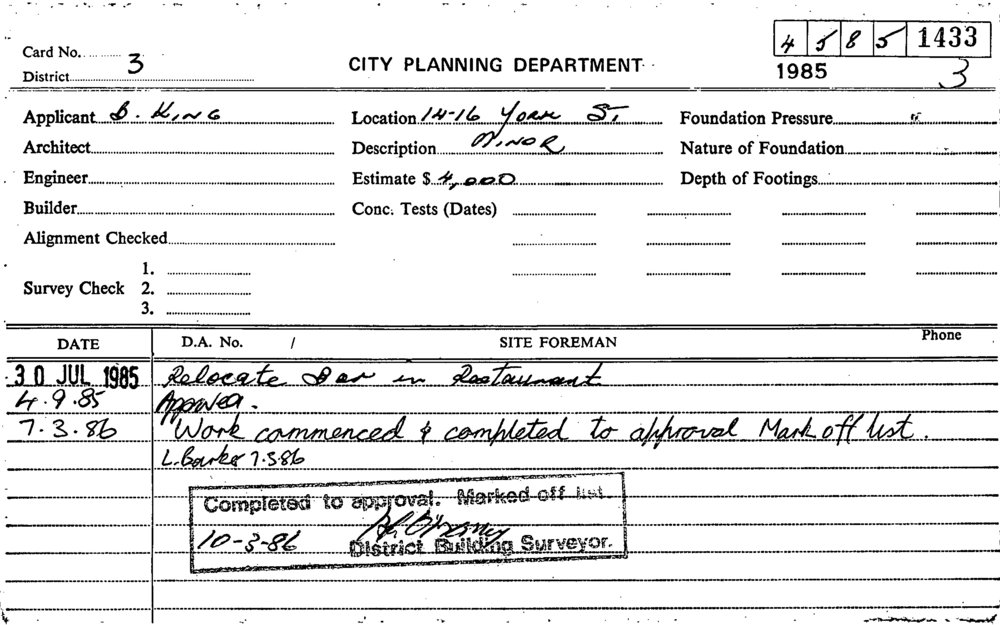 4 5 8 5 1433
Card No.
3
CITY PLANNING DEPARTMENT
District
1985 3
Applicant B. KING Location 14-16 York St. Foundation Pressure
Architect Description MINOR Nature of Foundation
Engineer Estimate $ 4,000 Depth of Footings
Builder Conc. Tests (Dates)
Alignment Checked
1.
Survey Check 2.
3.
DATE D.A. No. / SITE FOREMAN Phone
30 JUL 1985 Relocate Bar in Restaurant
4.9.85
7.3.86 Work commenced & completed to approval Mark off list.
7.3.86
Completed to approval. Marked off list.
10-3-86 District Building Surveyor.